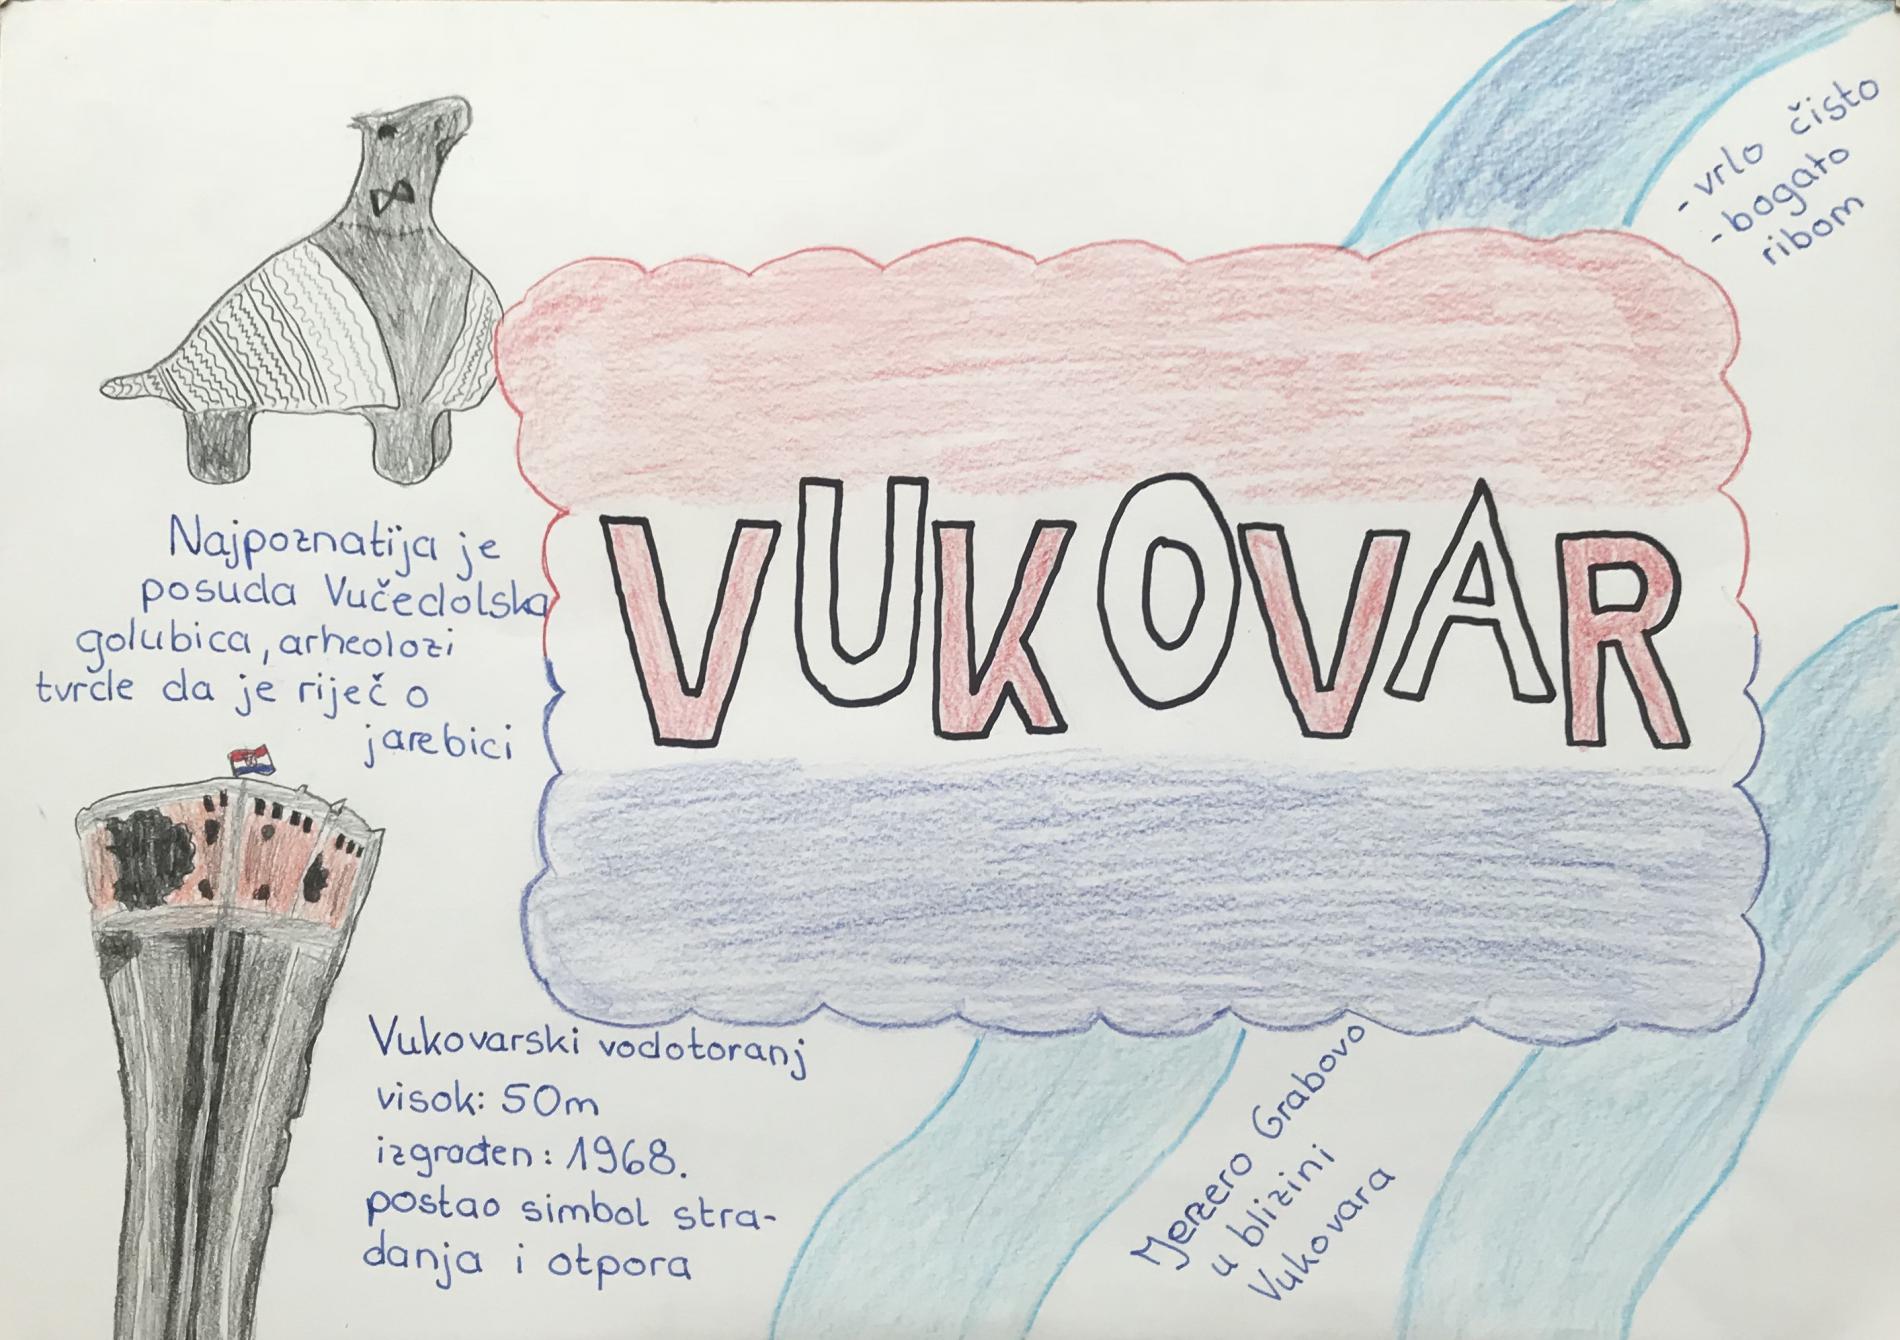 Najpoznatija je
posuda Vučedolska
golubica, arheolozi
tvrde da je riječ o
jarebici
VUKOVAR
- vrlo čisto
- bogato
ribom
Vukovarski vodotoranj
visok: 50m
izgrađen: 1968.
postao simbol stra-
danja i otpora
Grabovo
u blizini
Vukovara